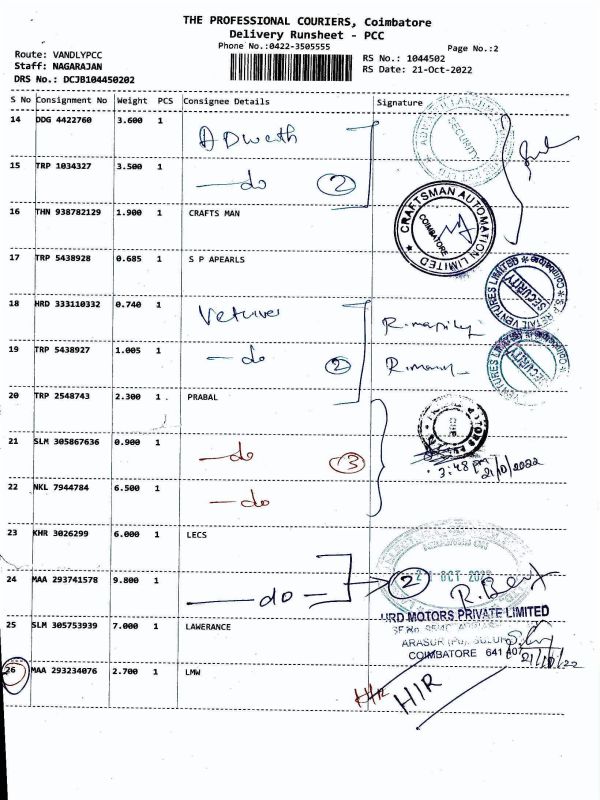 THE PROFESSIONAL COURIERS, Coimbatore
Delivery Runsheet - PCC
Phone No.:0422-3505555
Page No.:2
Route: VANDLYPCC
RS No.: 1044502
Staff: NAGARAJAN
RS Date: 21-Oct-2022
DRS No.: DCJB104450202
S No Consignment No Weight PCS Consignee Details Signature
14 DDG 4422760 3.600 1 ADwerth
15 TRP 1034327 3.500 1 — do 2
SECURITY
16 THN 938782129 1.900 1 CRAFTS MAN
CRAFTSMAN AUTOMATION LIMITED
COIMBATORE
17 TRP 5438928 0.685 1 S P APEARLS
S.P RETAIL VENTURES LIMITED Coimbatore
SECURITY
18 HRD 333110332 0.740 1
19 TRP 5438927 1.005 1 — do 2
VENTURES LIMITED Coimbatore
SECURITY
20 TRP 2548743 2.300 1 . PRABAL
21 SLM 305867636 0.900 1 — do 3
3:48 pm
21/10/2022
22 NKL 7944784 6.500 1 — do
23 KHR 3026299 6.000 1 LECS
24 MAA 293741578 9.800 1 — do — 2
21 OCT 2022
URD MOTORS PRIVATE LIMITED
25 SLM 305753939 7.000 1 LAWERANCE
ARASUR (PO), SULUR
COIMBATORE 641 407
21/10/22
26 MAA 293234076 2.700 1 LMW
H/R
H/R